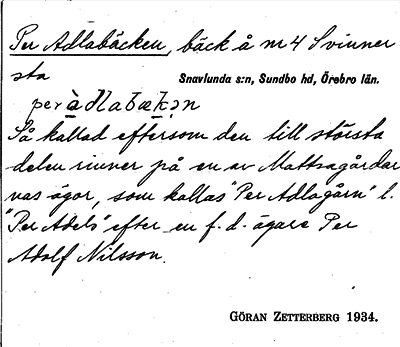 Per Adlabäcken, bäck å n 4 Svinner
sta Snavlunda s:n, Sundbo hd, Örebro län.
per àdlabækən
Så kallad eftersom den till största
delen rinner på en av Mattsagårdar
nas ägor, som kallas "Per Adlagårn" l.
"Per Adels" efter en f.d. ägare Per
Adolf Nilsson.
GÖRAN ZETTERBERG 1934.